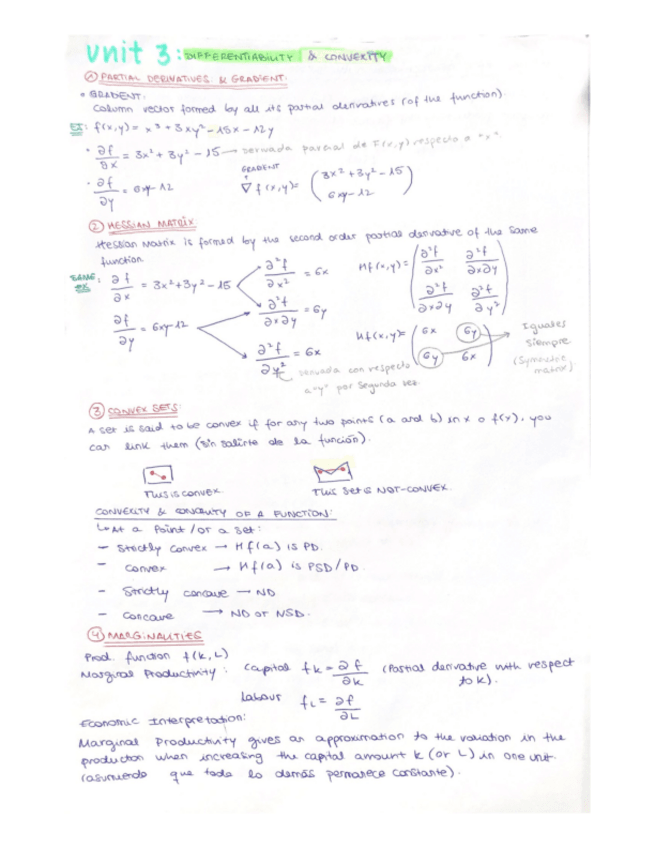 Unit 3: DIFFERENTIABILITY & CONVEXITY
① PARTIAL DERIVATIVES & GRADIENT.
• GRADIENT:
Column vector formed by all its partial derivatives (of the function).
EX: f(x,y) = x³ + 3xy² - 15x - 12y
• ∂f/∂x = 3x² + 3y² - 15 → derivada parcial de F(x,y) respecto a "x"
• ∂f/∂y = 6xy - 12
GRADIENT
∇f(x,y) = (3x² + 3y² - 15
6xy - 12)
② HESSIAN MATRIX
Hessian Matrix is formed by the second order partial derivative of the same
function.
SAME EX: ∂f/∂x = 3x² + 3y² - 15
∂f/∂y = 6xy - 12
∂²f/∂x² = 6x
∂²f/∂x∂y = 6y
∂²f/∂y² = 6x
derivada con respecto
a "y" por segunda vez.
Hf(x,y) = (∂²f/∂x² ∂²f/∂x∂y
∂²f/∂x∂y ∂²f/∂y²)
Hf(x,y) = (6x 6y
6y 6x)
Iguales
siempre
(Symmetric
matrix)
③ CONVEX SETS:
A set is said to be convex if for any two points (a and b) in x o f(x), you
can link them (sin salirte de la función).
This is convex.
This set is NOT-CONVEX.
CONVEXITY & CONCAVITY OF A FUNCTION:
↳ At a point / or a set:
- Strictly convex → Hf(a) is PD.
- Convex → Hf(a) is PSD/PD.
- Strictly concave → ND
- Concave → ND or NSD.
④ MARGINALITIES
Prod. function f(K,L)
Marginal Productivity: Capital fK = ∂f/∂K (Partial derivative with respect
to K).
Labour fL = ∂f/∂L
Economic Interpretation:
Marginal Productivity gives an approximation to the variation in the
production when increasing the capital amount K (or L) in one unit.
(asumiendo que todo lo demás permanece constante).